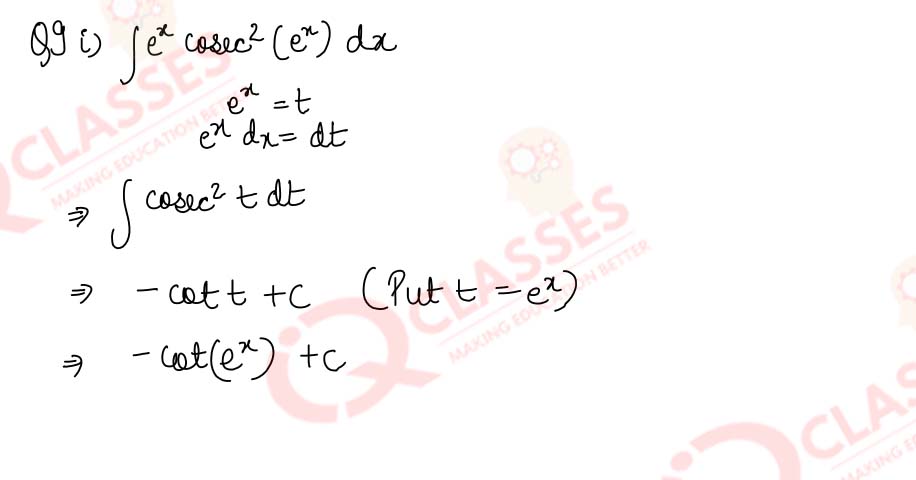 Q9 i) ∫ eˣ cosec² (eˣ) dx
eˣ = t
eˣ dx = dt
⇒ ∫ cosec² t dt
⇒ -cot t + c (Put t = eˣ)
⇒ -cot(eˣ) + c
CLASSES
MAKING EDUCATION BETTER
CLASSES
MAKING EDUCATION BETTER
CLASSES
MAKING EDUCATION